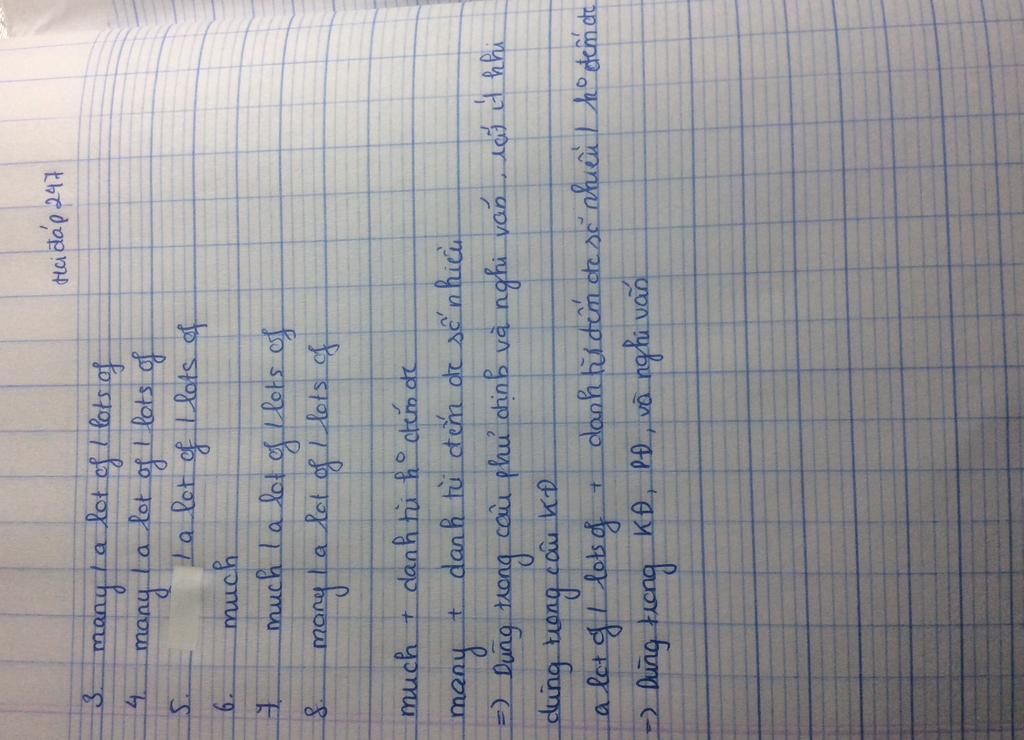 Hỏi đáp 247
3. many / a lot of / lots of
4. many / a lot of / lots of
5. / a lot of / lots of
6. much
7. much / a lot of / lots of
8. many / a lot of / lots of
much + danh từ k° đếm đc
many + danh từ đếm đc số nhiều
=) Dùng trong câu phủ định và nghi vấn, rất ít khi
dùng trong câu KĐ
a lot of / lots of + danh từ đếm đc số nhiều / k° đếm đc
=) Dùng trong KĐ, PĐ, và nghi vấn